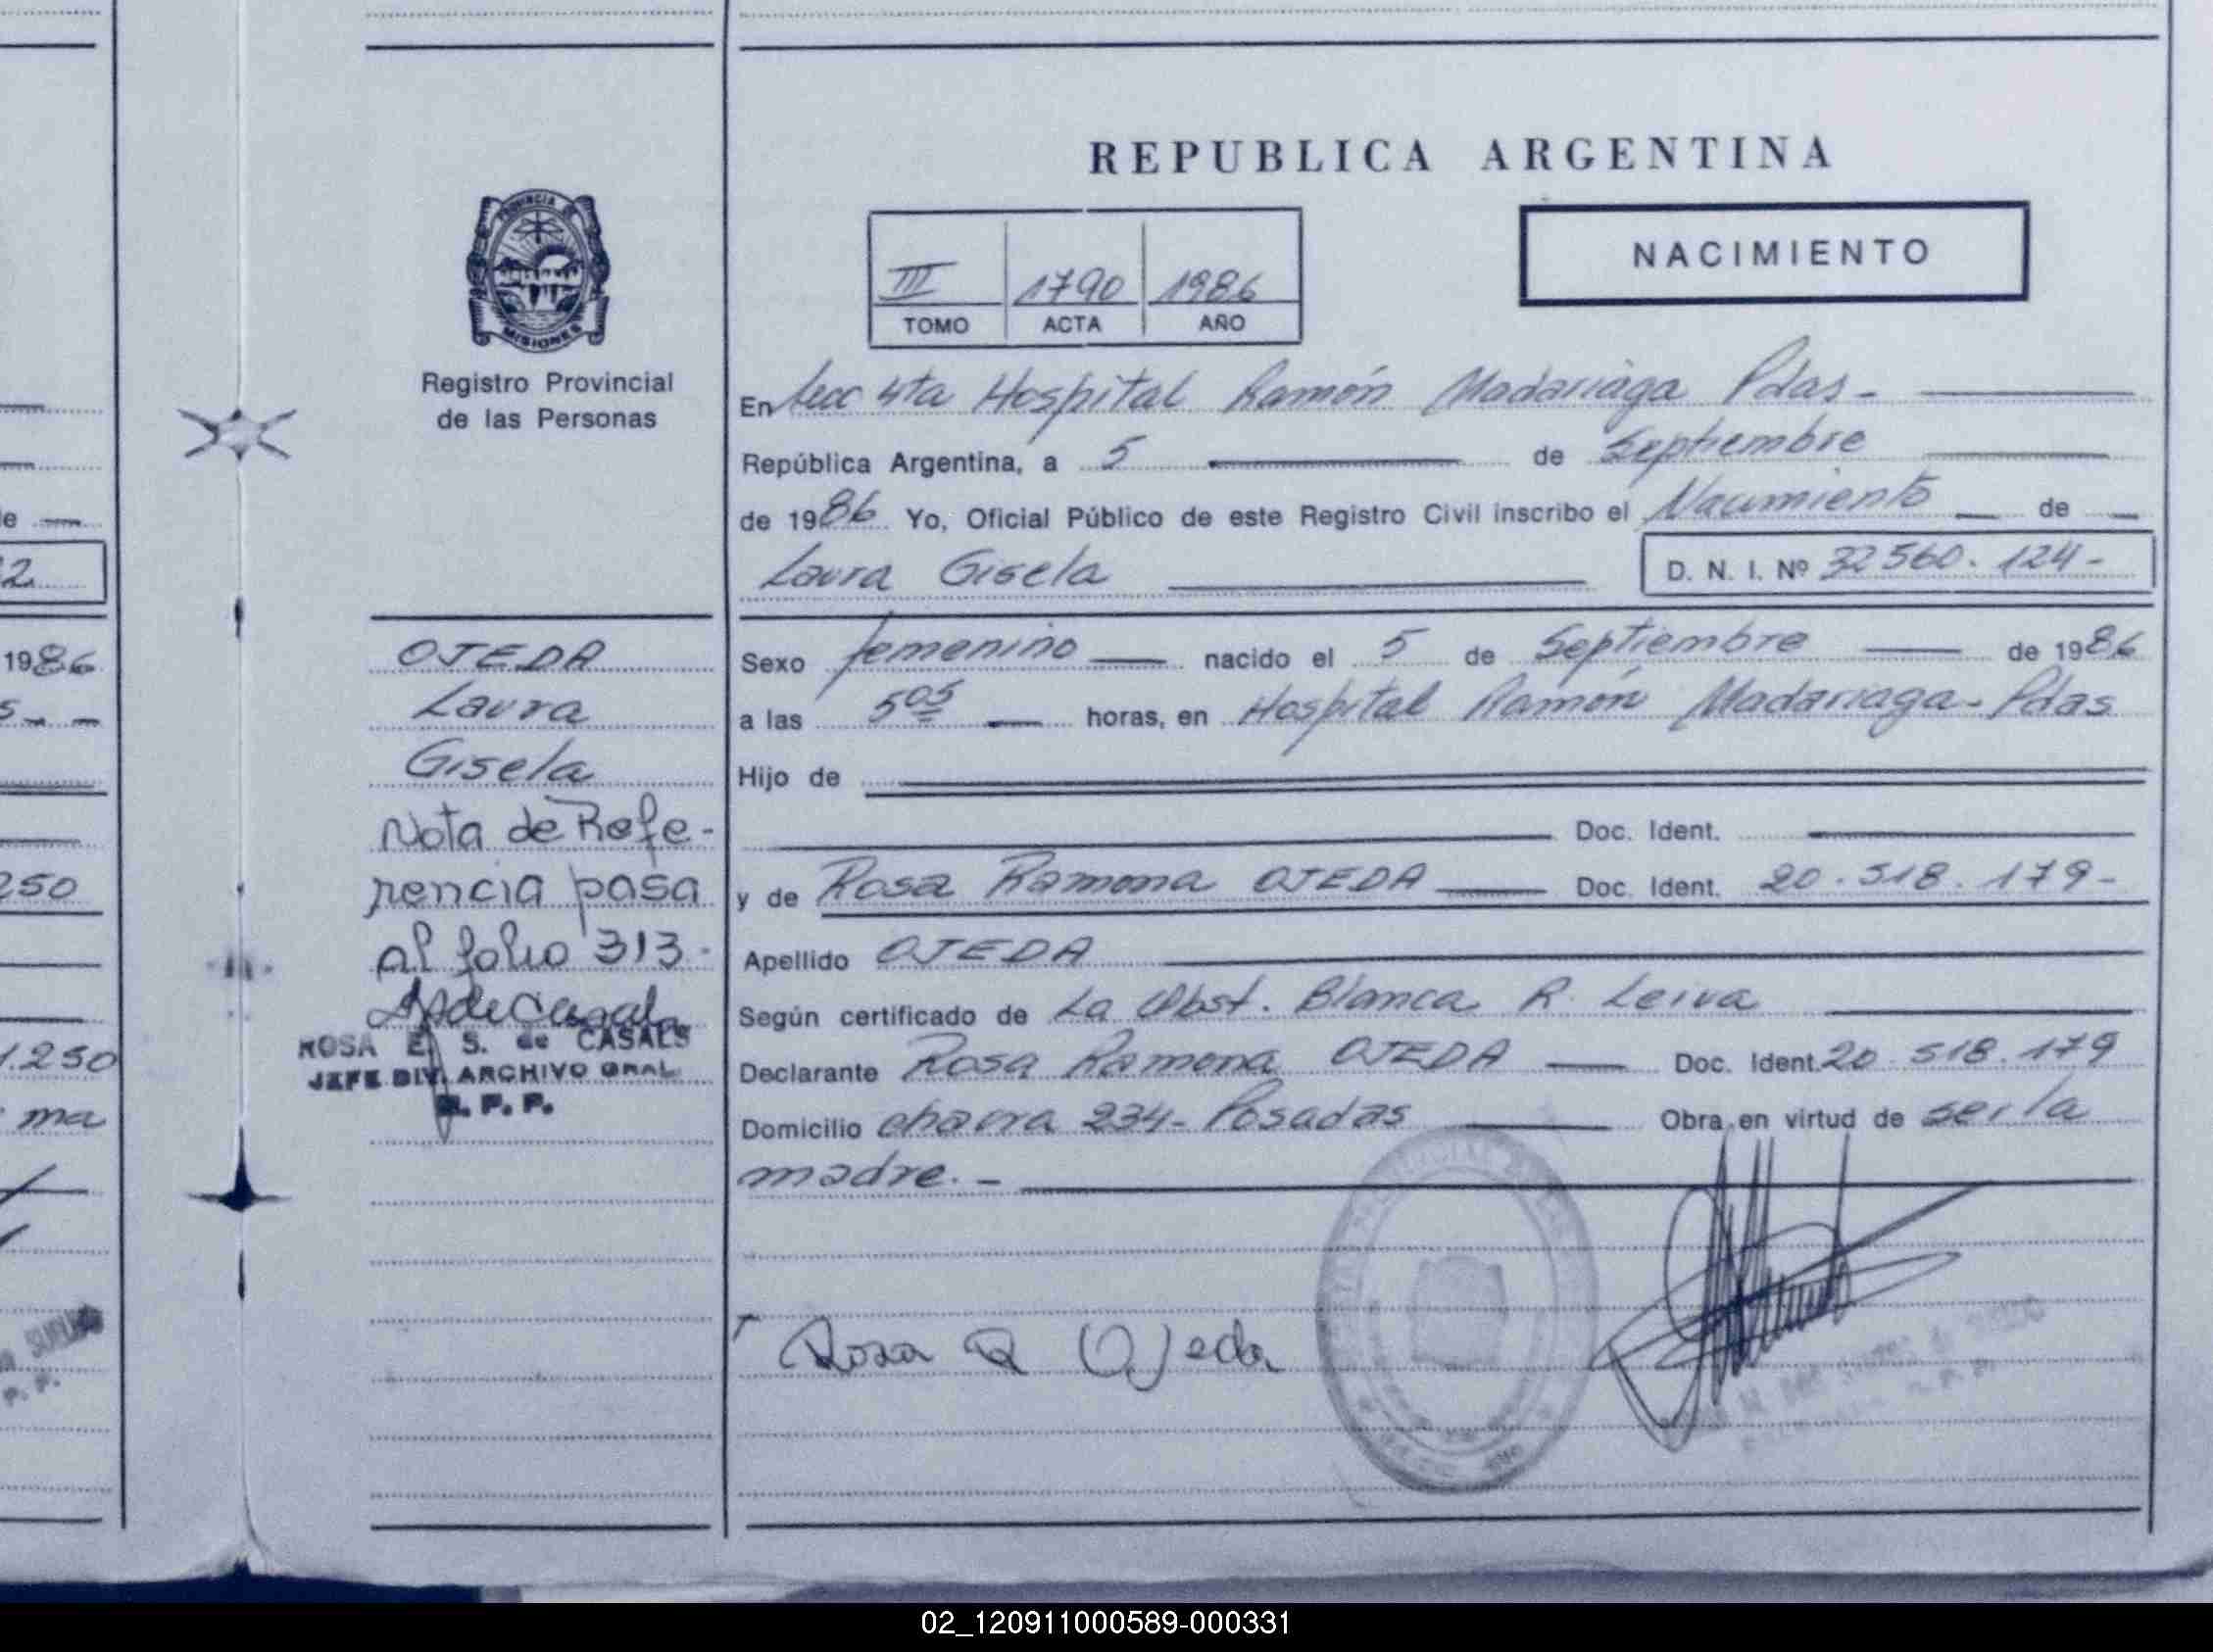 REPUBLICA ARGENTINA
PROVINCIA DE
MISIONES
Registro Provincial
de las Personas
III 1790 1986
TOMO ACTA AÑO
NACIMIENTO
En Secc 4ta Hospital Ramón Madariaga Pdas-
República Argentina, a 5 de Septiembre
de 1986 Yo, Oficial Público de este Registro Civil inscribo el Nacimiento de
Laura Gisela D. N. I. Nº 32560.124-
Sexo femenino nacido el 5 de Septiembre de 1986
a las 5 05 horas, en Hospital Ramón Madariaga-Pdas
Hijo de
Doc. Ident.
y de Rosa Ramona OJEDA Doc. Ident. 20.518.179-
Apellido OJEDA
Según certificado de La Obst. Blanca R. Leiva
Declarante Rosa Ramona OJEDA Doc. Ident. 20.518.179
Domicilio chacra 234- Posadas Obra en virtud de ser la
madre.-
Rosa R Ojeda
OJEDA
Laura
Gisela
Nota de Refe-
rencia pasa
al folio 313.
ROSA E. S. de CASALS
JEFE DIV. ARCHIVO GRAL
R. P. P.
2
1986
250
1.250
ma
02_120911000589-000331